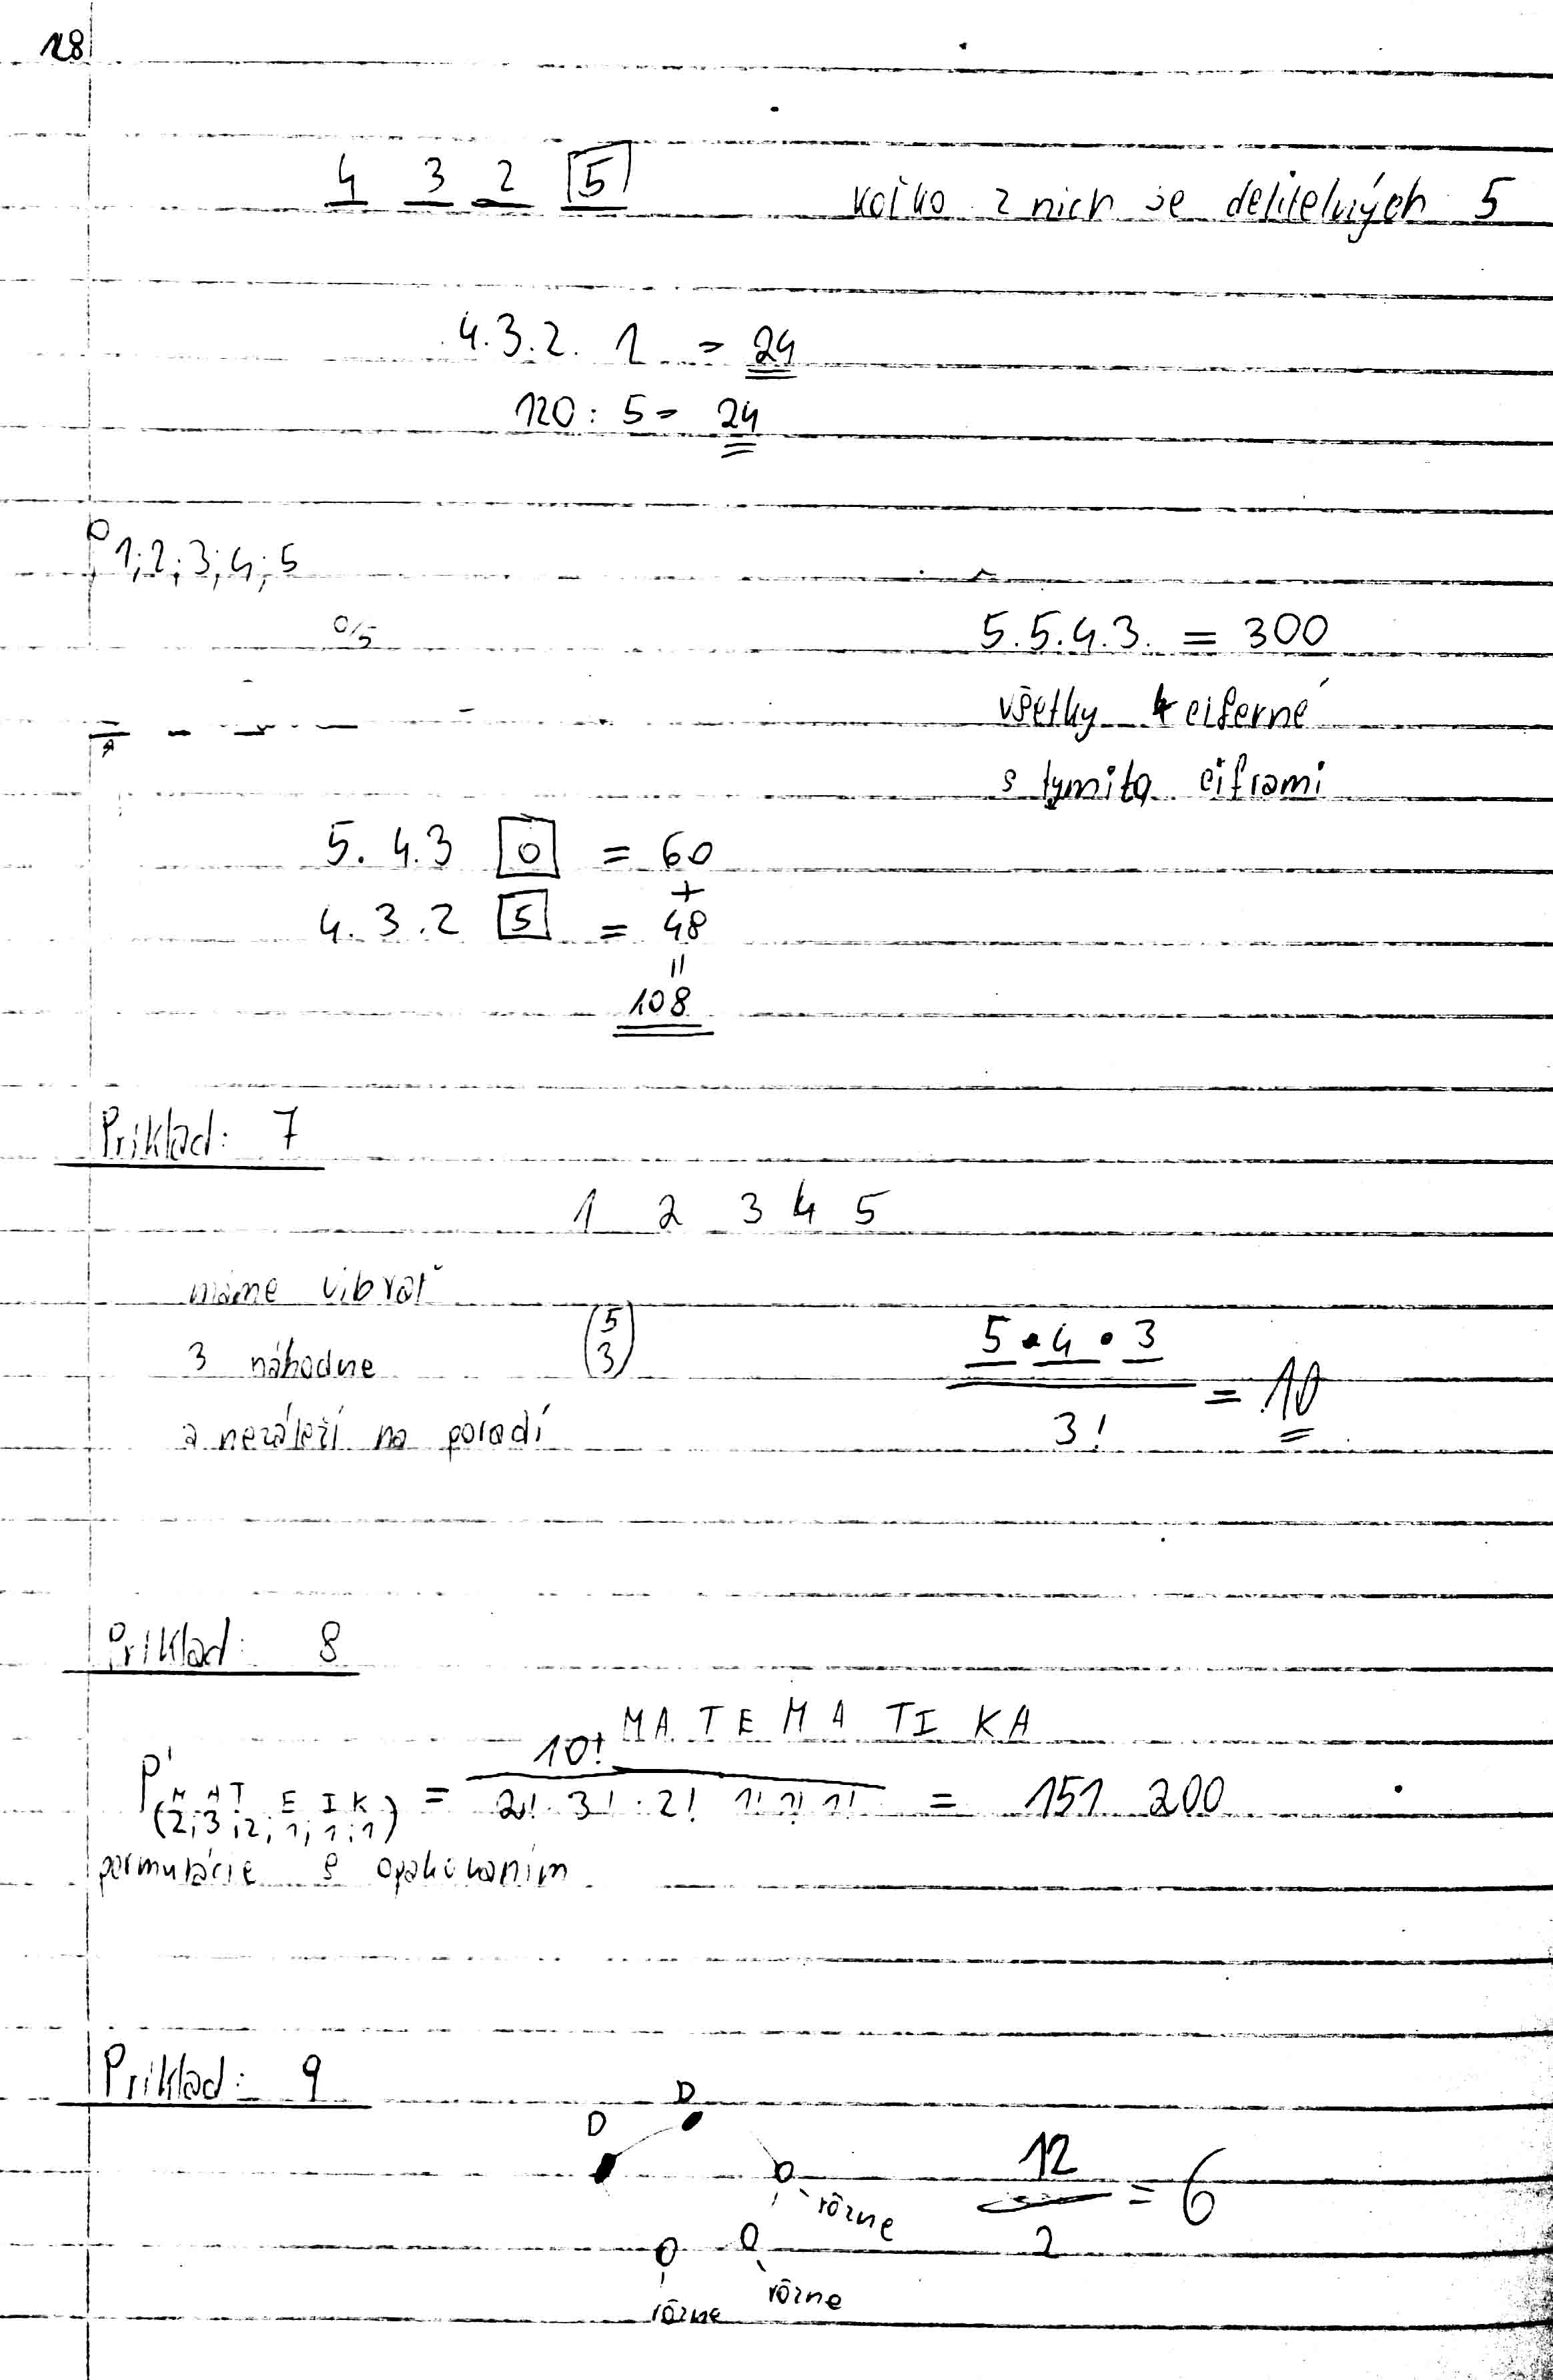 18
4 3 2 5 koľko z nich je deliteľných 5
4.3.2. 1 = 24
120 : 5 = 24
1; 2; 3; 4; 5
0/5
5.5.4.3. = 300
všetky 4 ciferné
s tymito ciframi
5. 4.3 0 = 60
+
4. 3 .2 5 = 48
=
108
Priklad: 7
1 2 3 4 5
máme vibrať
3 náhodne
a nezáleží na poradí
(5 3)
5 • 4 • 3
3!
= 10
Priklad: 8
MATEMATIKA
P'
M A T E I K
(2;3;2;1;1;1)
=
10!
2! 3! . 2! 1! 1! 1!
= 151 200
permutácie s opakovaním
Priklad: 9
D D
12
2
= 6
rôzne
rôzne
rôzne